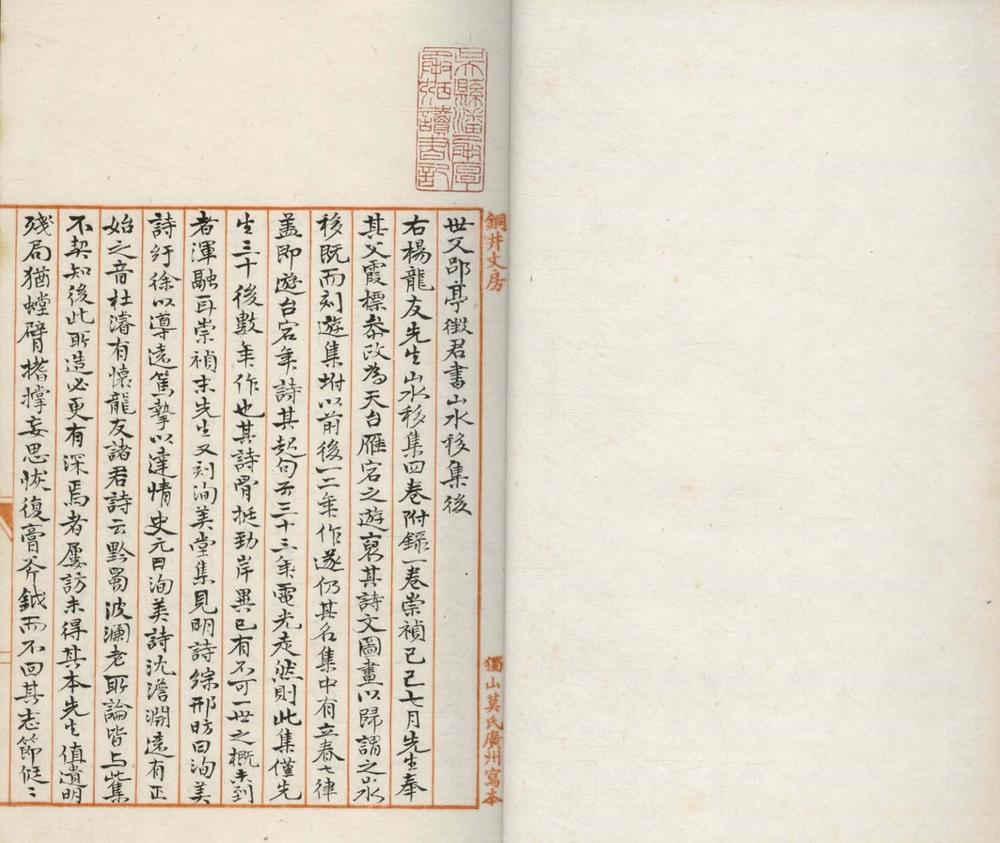 吳縣潘承厚
承弼讀書記
銅井文房
獨山莫氏廣州寫本
世父郘亭徵君書山水移集後
右楊龍友先生山水移集四卷附錄一卷崇禎己巳七月先生奉
其父霞標叅政為天台雁宕之遊裒其詩文圖畫以歸謂之山水
移既而刻遊集坿以前後一二年作遂仍其名集中有立春七律
盖即遊台宕年詩其起句云三十三年電光走然則此集僅先
生三十後數年作也其詩骨挺勁岸異已有不可一世之概未到
者渾融耳崇禎末先生又刻洵美堂集見明詩綜邢昉曰洵美
詩紆徐以導遠篤摯以達情史元曰洵美詩沈澹淵遠有正
始之音杜濬有懷龍友諸君詩云黔蜀波瀾老所論皆与此集
不契知後此所造必更有深焉者屢訪未得其本先生值遺明
殘局猶螳臂搘撑妄思恢復膏斧鉞而不回其志節侹〻